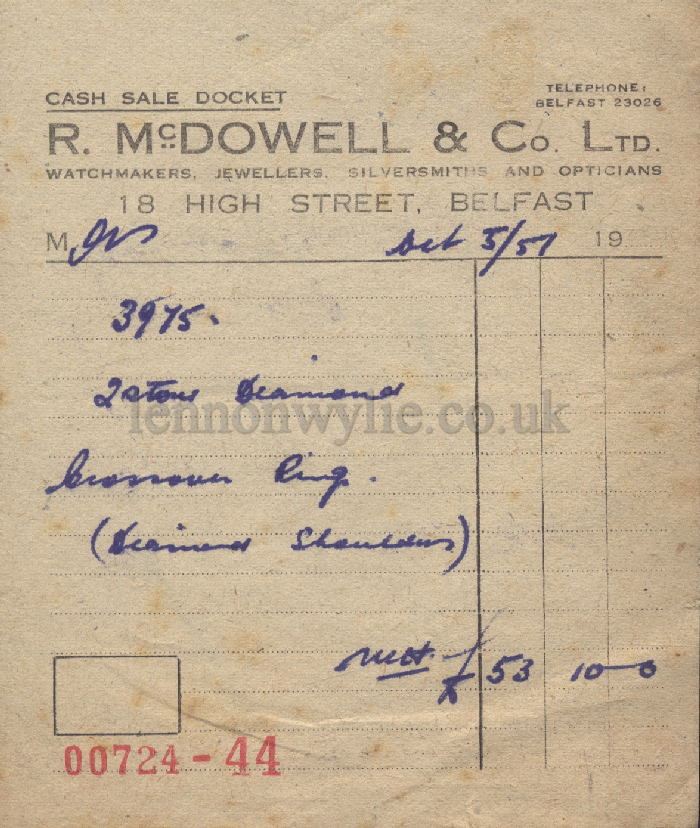 CASH SALE DOCKET
TELEPHONE:
BELFAST 23026
R. McDOWELL & Co. LTD.
WATCHMAKERS, JEWELLERS, SILVERSMITHS AND OPTICIANS
18 HIGH STREET, BELFAST
M Oct 5/51 19
3975.
2 stone Diamond
lennonwylie.co.uk
Crossover Ring.
(Diamond Shoulders)
nett £ 53 10-0
00724-44